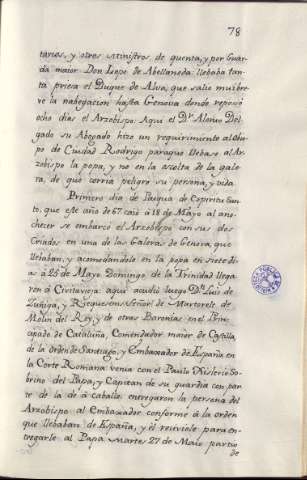 78
tarios, y otros Ministros de quenta, y por Guar
da maior Don Lope de Abellaneda: llebaba tan
ta priesa el Duque de Alva, que salio mui bre
ve la nabegacion hasta Genova donde reposó
ocho dias el Arzobispo: Aqui el Dr. Alonso Del
gado su Abogado hizo un requirimiento al obis
po de Ciudad Rodrigo paraque llebase al Ar
zobispo la popa, y no en la escolta de la gale
ra, de que corria peligro su persona, y vida
Primero dia de Pasqua de Espiritu San
to, que este año de 67 caió á 18 de Mayo al ano
checer se embarco el Arzobispo con sus dos
Criados en una de las Galeras de Genova, que
llebaban, y acomodandolo en la popa en siete di
as á 25 de Mayo Domingo de la Trinidad llega
ron á Civitavieja: aqui acudió luego Dn. Luis de
Zuñiga, y Requesens Señor de Martorele de
Molin del Rey, y de otras Baronias en el Prin
cipado de Cataluña, Comendador maior de Castilla,
de la orden de Santiago, y Embaxador de España en
la Corte Romana: venia con el Paulo Xislerio So
brino del Papa, y Capitan de su guardia con par
te de la de á caballo: entregaron la persona del
Arzobispo al Embaxador conforme á la orden
que llebaban de España, y el reciviole para en
tregarle al Papa Martes 27 de Maio partio
de